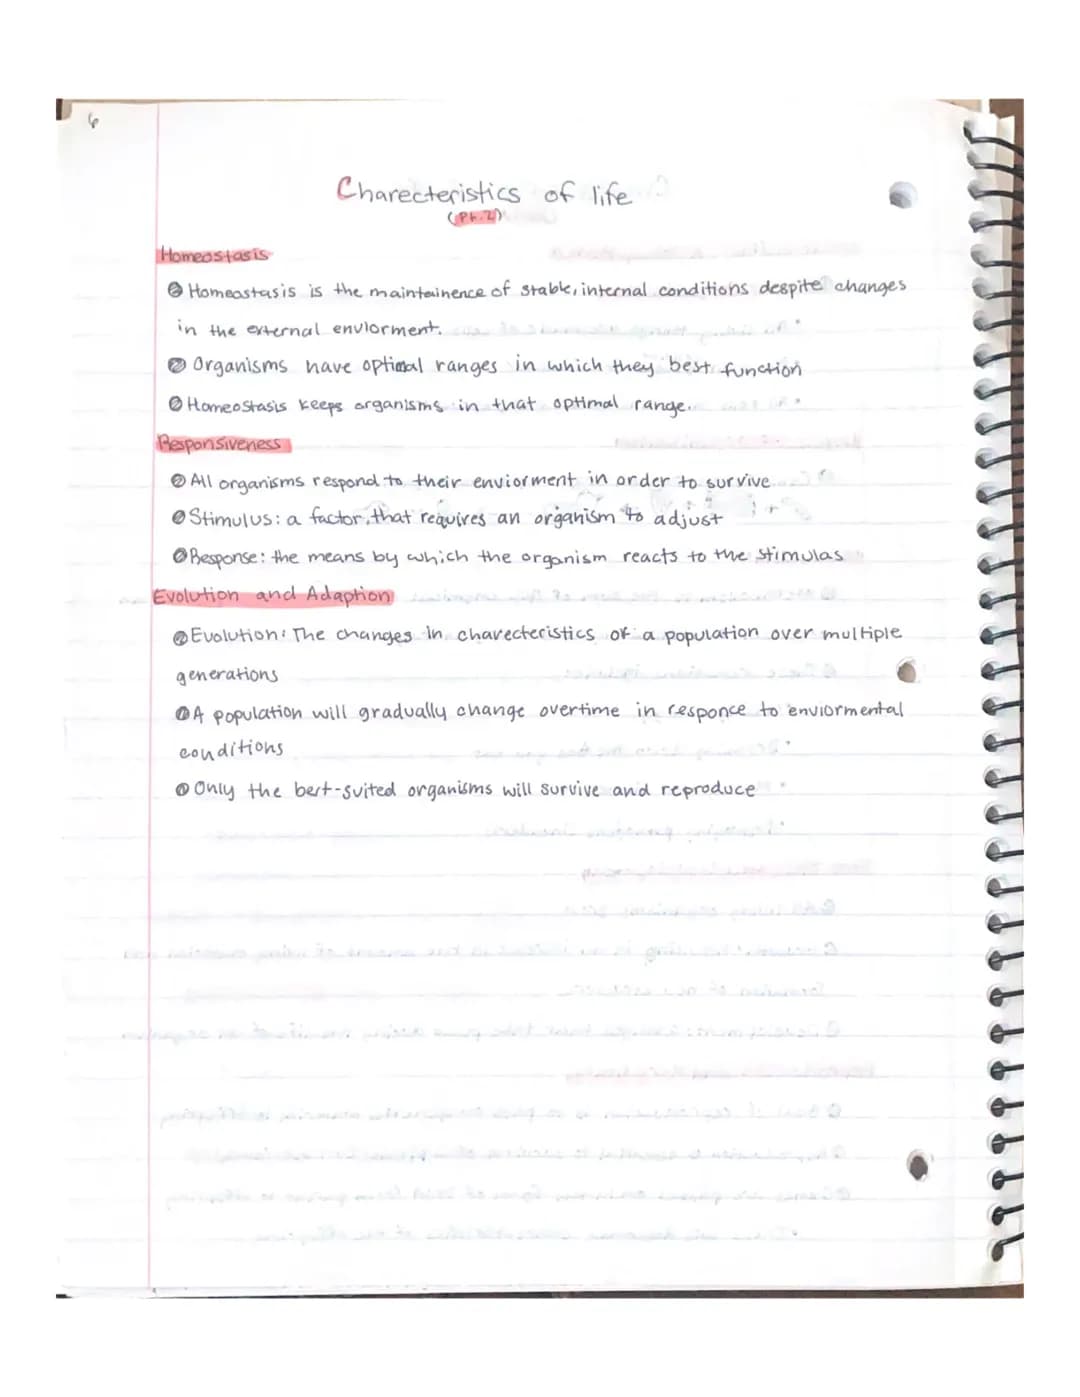 6
Charecteristics of life
(Pt.2)
Homeostasis
Homeostasis is the maintainence of stable, internal conditions despite changes
in the external enviorment.
Organisms have optimal ranges in which they best function
Homeostasis keeps organisms in that optimal range.
Responsiveness
All organisms respond to their enviorment in order to survive
Stimulus: a factor that requires an organism to adjust
Response: the means by which the organism reacts to the stimulas
Evolution and Adaption
Evolution: The changes in charecteristics of a population over multiple
generations
A population will gradually change overtime in responce to enviormental
conditions
Only the best-suited organisms will survive and reproduce